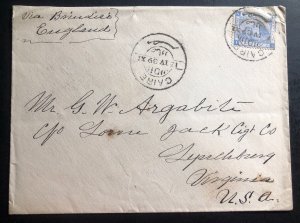 Via Brindisi
England
CAIRE
Mr G. W. Argabite
c/o Lone Jack Cigt Co
Lynchburg
Virginia
U.S.a.